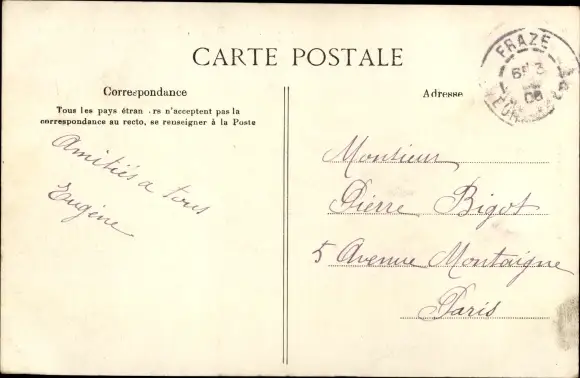 CARTE POSTALE
Correspondance
Tous les pays étran rs n'acceptent pas la
correspondance au recto, se renseigner à la Poste
Amitiés a tous
Eugène
Adresse
Monsieur
Pierre Bigot
5 Avenue Montaigne
Paris
FRAZE
6E 3
08